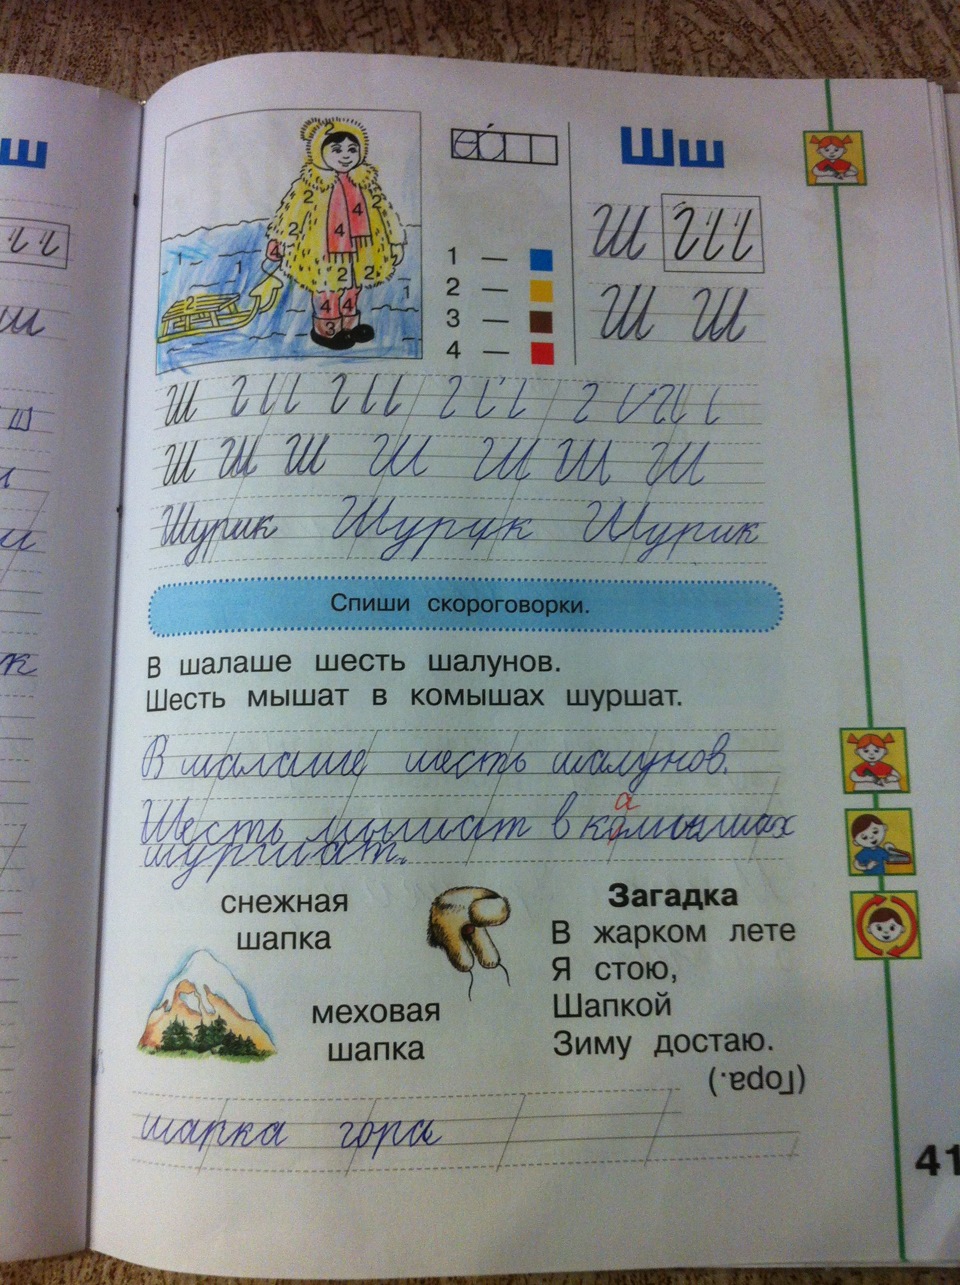 Шш
1 —
2 —
3 —
4 —
2
2 2 2 4
4 4 2 2
1 1 1
2 4 4 3
Ш
Ш Ш
Ш
Ш Ш Ш Ш Ш Ш Ш
Шурик Шурик Шурик
Спиши скороговорки.
В шалаше шесть шалунов.
Шесть мышат в комышах шуршат.
В шалаше шесть шалунов.
а
Шесть мышат в комышах
шуршат.
снежная
шапка
меховая
шапка
Загадка
В жарком лете
Я стою,
Шапкой
Зиму достаю.
(Гора.)
шарка гора
41